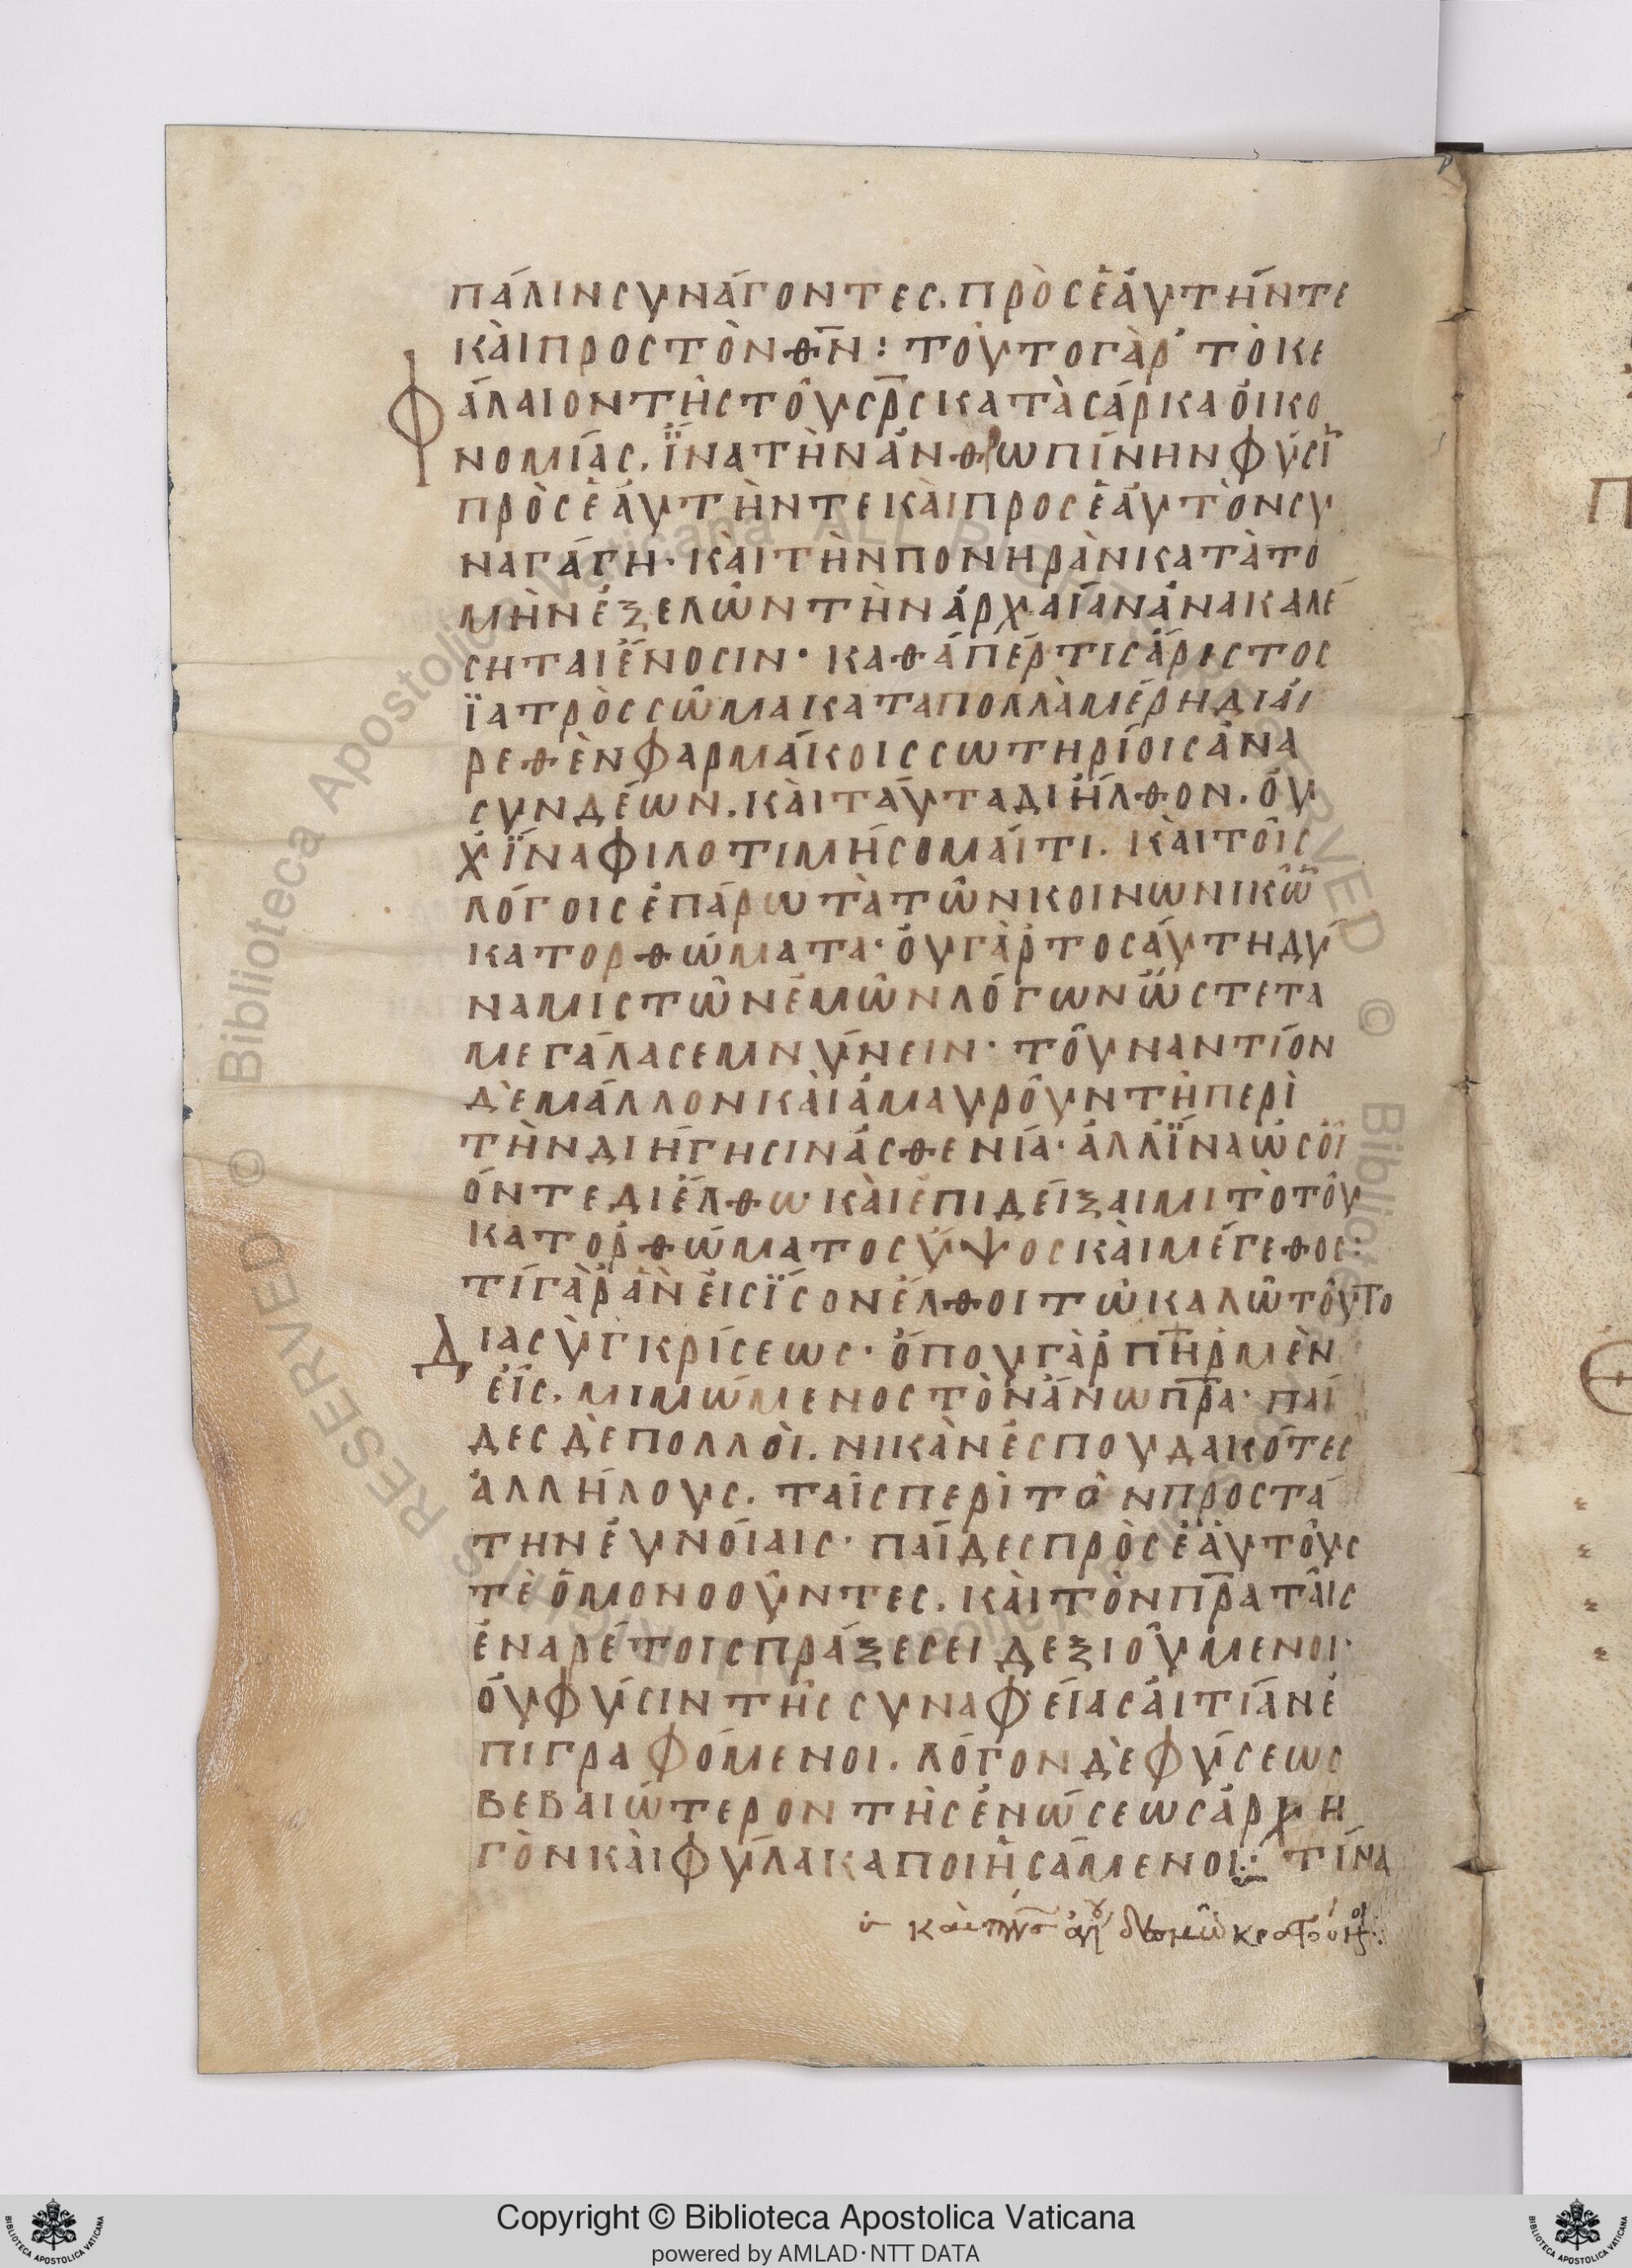 πάλινсυνάγοντες. πρὸςἑαυτήντε
κὰιπροςτὸνθ̅ν̅: τοῦτογὰρ τὸκε
φάλαιοντῆςτοῦσρ̅ςκατὰσάρκαὀικο
νομίας. ἵνατὴνἀνθρωπίνηνφύσῑ
πρὸςἑαυτὴντεκὰιπροςἑαυτὸνσυ
ναγάγη· κὰιτὴνπονηρὰνκατὰτο
μὴνἐξελῶντὴνἀρχαίανἀνακαλέ
σηταιἕνοσιν· καθάπέρτιςἄριστος
ἰατρὸςσῶμακαταπολλὰμέρηδιάι
ρεθὲνφαρμάκοιςσωτηρίοιςἀνα
συνδέων. κὰιταῦταδιῆλθον. ὀυ
χἵναφιλοτιμήσομάιτι. κὰιτοῖς
λόγοιςἐπάρωτὰτῶνκοινωνικῶ̅
κατορθώματα· ὀυγὰρτοσάυτηδύ
ναμιςτῶνἐμῶνλόγωνὥστετα
μεγάλασεμνύνειν· τοὐναντίον
δὲμάλλονκὰιἀμαυροῦντῆπερὶ
τὴνδιήγησινἀσθενία· ἀλλἵναὡσὅι
όντεδιέλθωκὰιἐπιδείξαιμιτὸτοῦ
κατορθώματοςὕψοςκὰιμέγεθος:
τίγὰρἂνἐισἴσονἔλθοιτῶκαλῶτούτο
Διασὺγκρίσεως· ὅπουγὰρπ̅η̅ρμὲν
εἷς. μιμώμενοςτὸνἄνωπ̅ρ̅α· παί
δεςδὲπολλὸι. νικὰνἐσπουδακότες
ἀλλήλους. ταῖςπερὶτὸνπροστά
τηνἐυνόιαις· παίδεςπρὸςἑαυτοῦς
τὲὁμονοοῦντες. κὰιτὸνπ̅ρ̅αταῖς
ἐναρέτοιςπράξεσειδεξιοῦμενοι·
ὀυφύσιντῆςσυναφείαςἀιτίανἐ
πιγραφόμενοι. λόγονδὲφύσεως
βεβαιώτεροντῆςἑνώσεωςἀρχη
γὸνκὰιφύλακαποιησάμενοι: τίνα